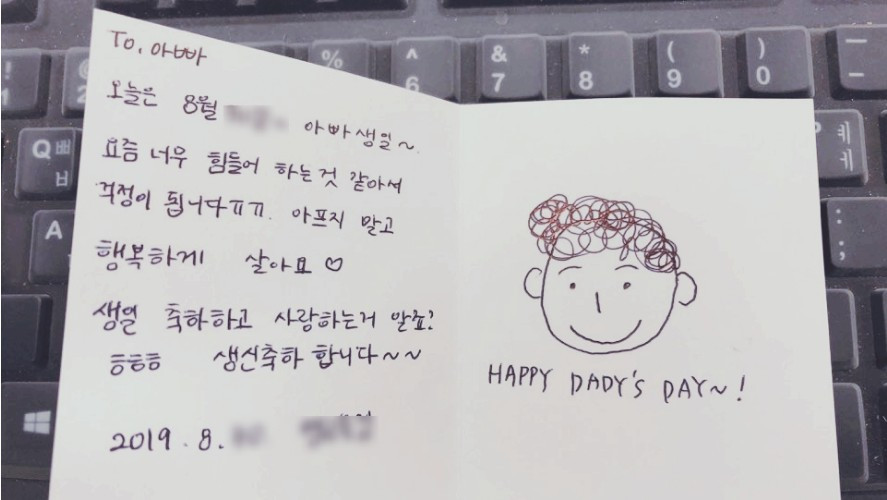 To. 아빠
오늘은 8월 아빠생일~
요즘 너무 힘들어 하는것 같아서
걱정이 됩니다ㅠㅠ. 아프지 말고
행복하게 살아요♡
생일 축하하고 사랑하는거 알죠?
흐흐흐 생신축하 합니다~~
2019. 8.
HAPPY DADY'S DAY~!
!
1
@
2
%
^
6
&
7
*
8
(
9
)
0
—
Q ㅃ
ㅂ
P ㅖ
ㅔ
A
:
;